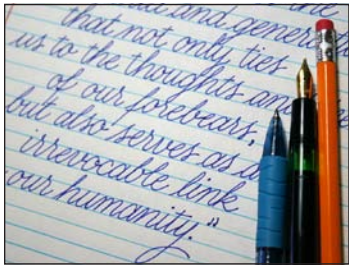 and the
and genera
that not only ties
us to the thoughts and
of our forebears,
but also serves as a
irrevocable link
our humanity."